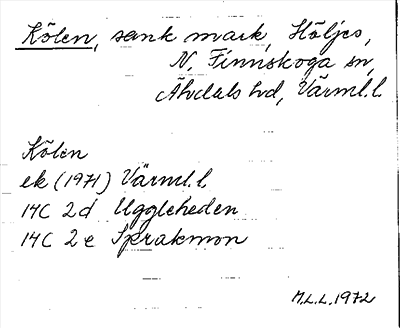 Kölen, sank mark, Höljes,
N. Finnskoga sn,
Älvdals hd, Värml.l.
Kölen
ek (1971) Värml.l
14C 2d Uggleheden
14C 2e Sprakmon
M.L.L. 1972